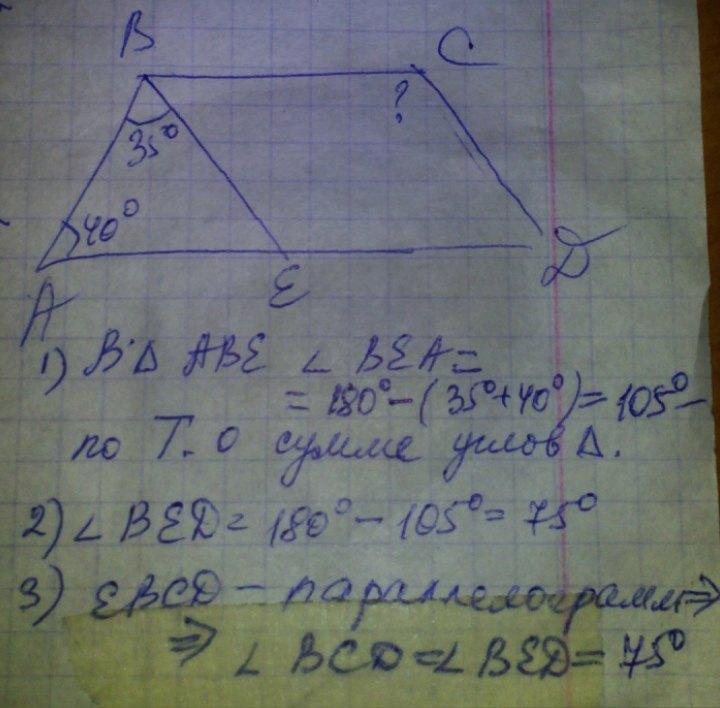 B C
35° ?
40°
A E D
1) В Δ ABE ∠ BEA =
= 180° - (35° + 40°) = 105° -
по Т. о сумме углов Δ.
2) ∠ BED = 180° - 105° = 75°
3) EBCD - параллелограмм ⇒
⇒ ∠ BCD = ∠ BED = 75°